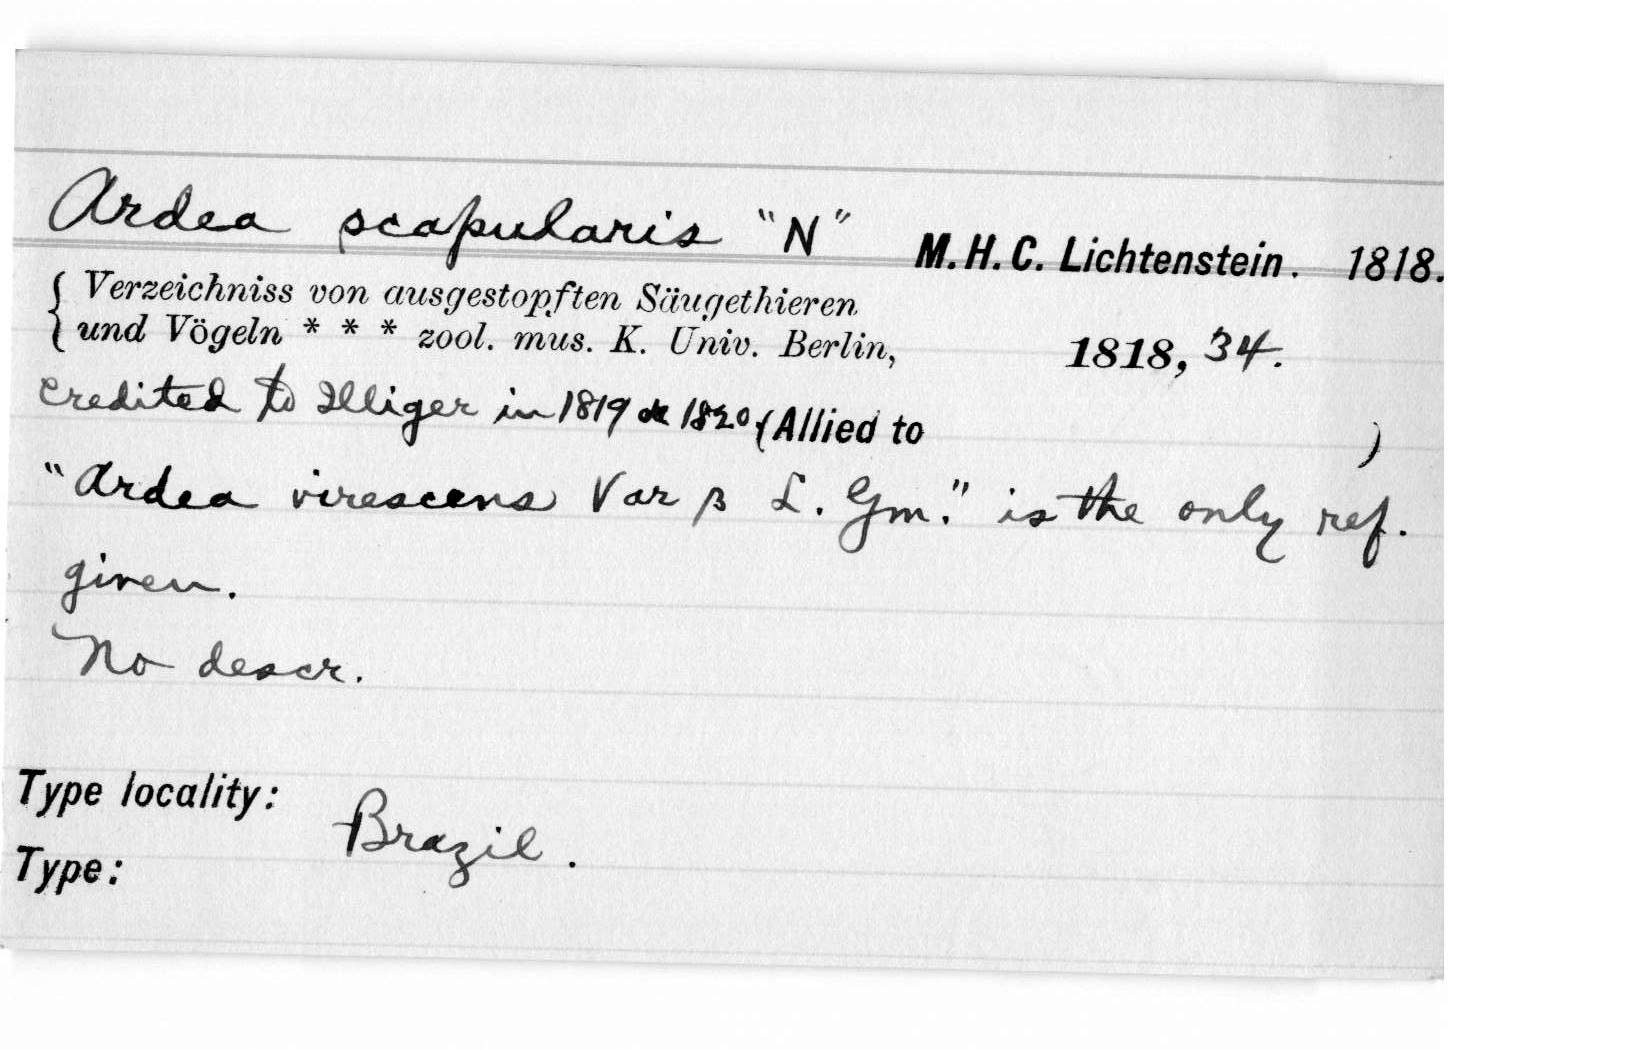 Ardea scapularis "N" M. H. C. Lichtenstein. 1818.
Verzeichniss von ausgestopften Säugethieren
und Vögeln * * * zool. mus. K. Univ. Berlin, 1818, 34.
Credited to Illiger in 1819 or 1820 (Allied to )
"Ardea virescens Var β L. Gm." is the only ref.
given.
No descr.
Type locality: Brazil.
Type: